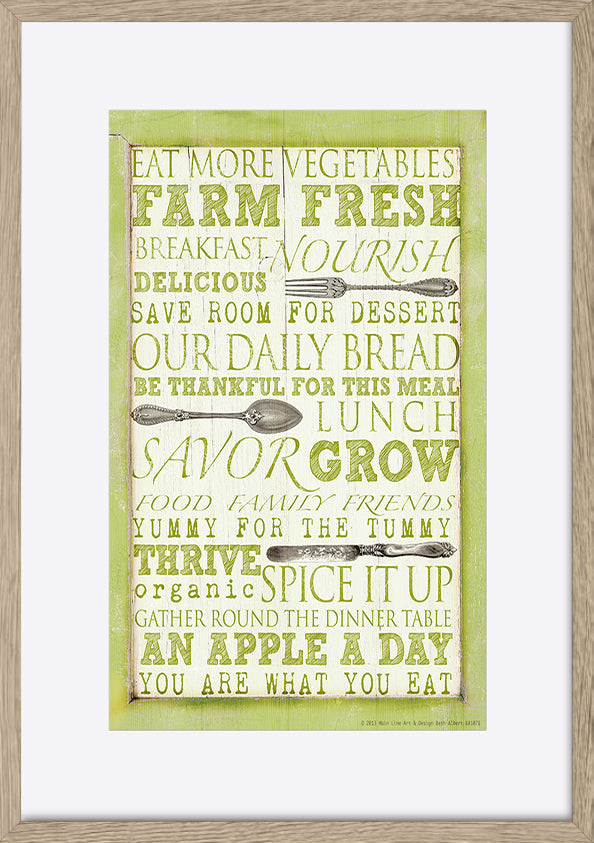 EAT MORE VEGETABLES
FARM FRESH
BREAKFAST NOURISH
DELICIOUS
SAVE ROOM FOR DESSERT
OUR DAILY BREAD
BE THANKFUL FOR THIS MEAL
LUNCH
SAVOR GROW
FOOD FAMILY FRIENDS
YUMMY FOR THE TUMMY
THRIVE
organic SPICE IT UP
GATHER ROUND THE DINNER TABLE
AN APPLE A DAY
YOU ARE WHAT YOU EAT
© 2013 Main Line Art & Design Beth Albert